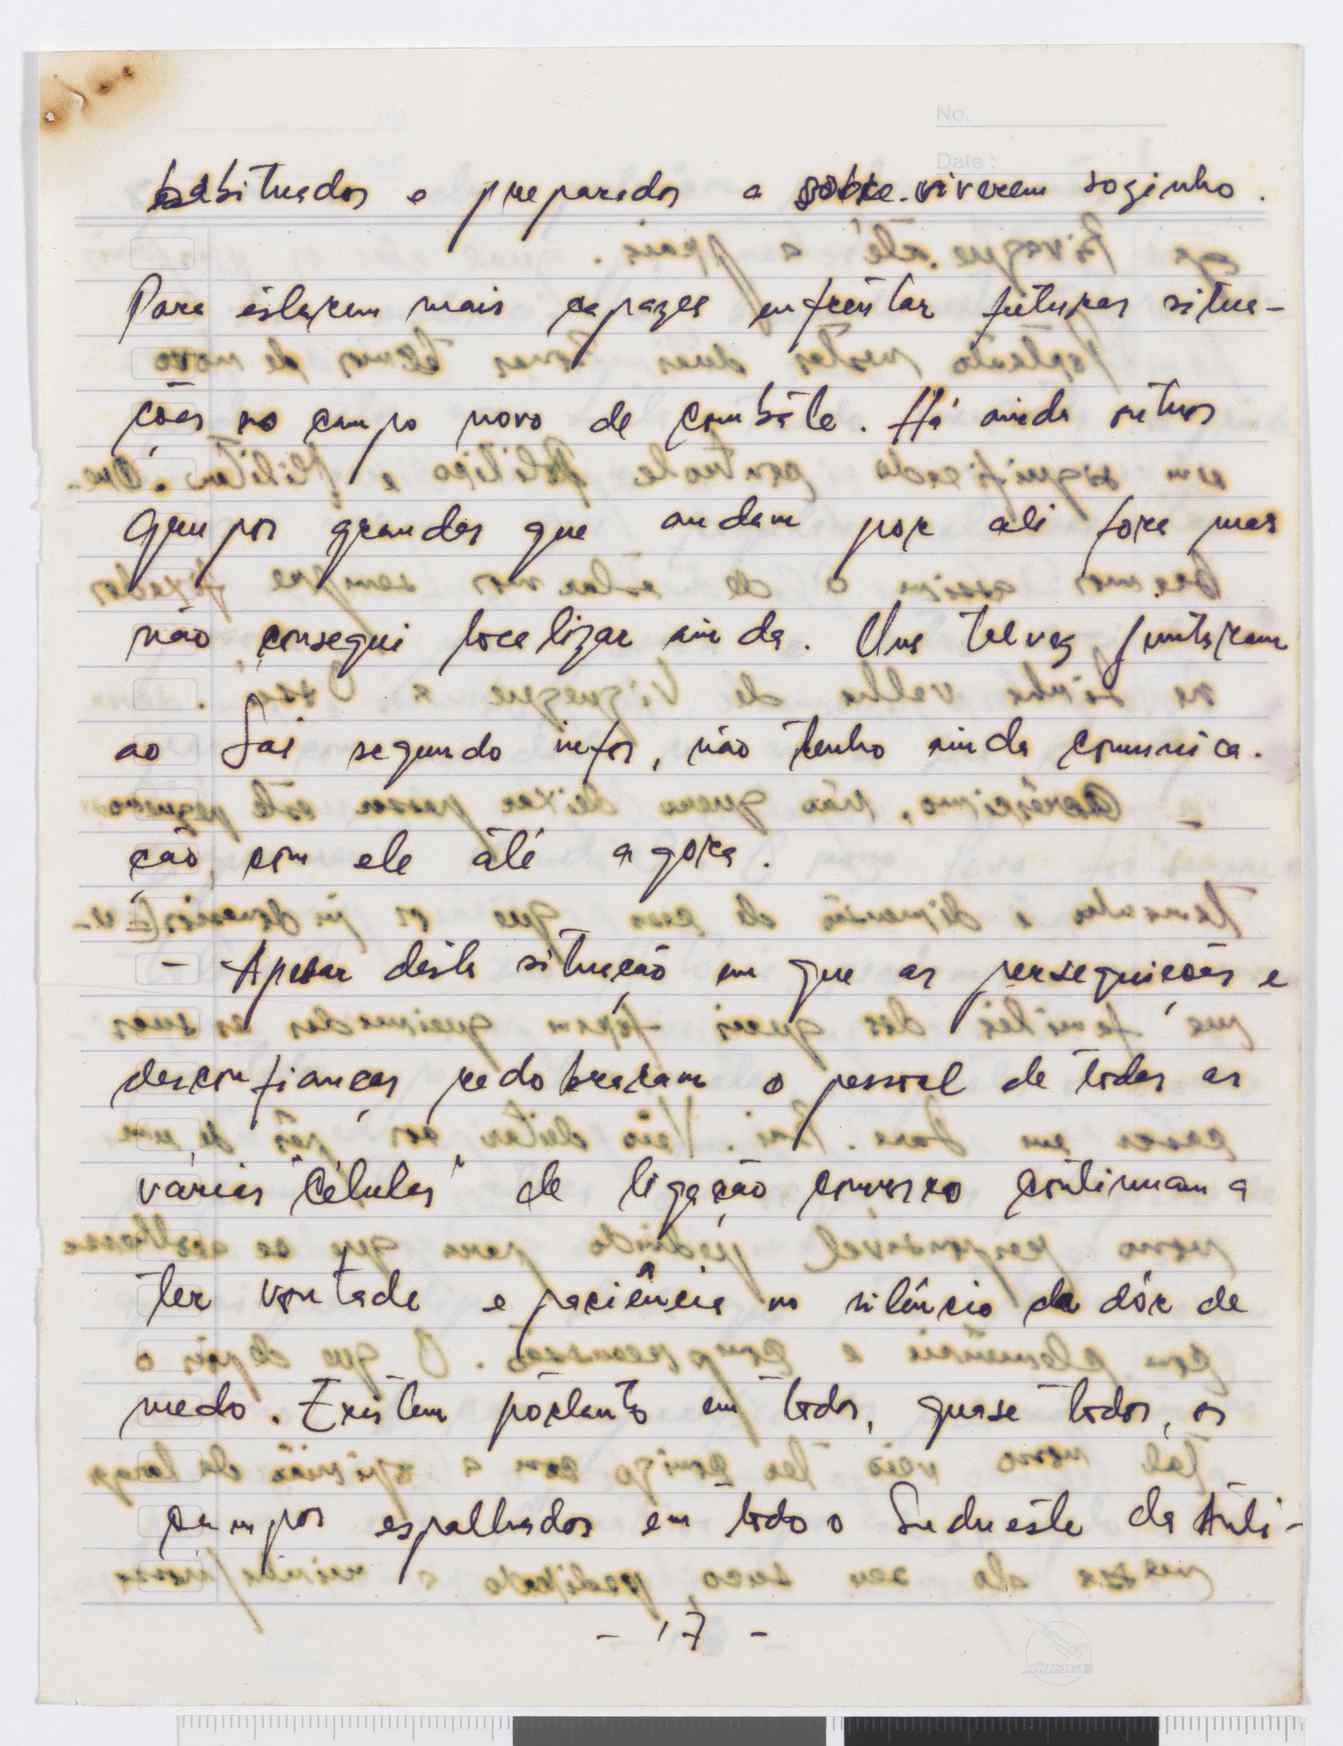 No.
Date :
habituados e preparados a sobre.viverem soginho.
Para estarem mais capazes enfrentar futuras situa-
ções no campo novo de combate. Há ainda outros
Grupos grandes que andam por ali fora mas
não consegui localizar ainda. Uns talvez juntaram
ao Sai segundo infor, não tenho ainda comunica.
cão com ele até agora.
- Apesar desta situação em que as perseguições e
desconfianças redobraram o pessoal de todas as
várias "Células" de ligação conosco continuam a
ter vontade e paciência no silêncio da dôr de
medo. Existem portanto em todos, quase todos, os
campos espalhados em todo o Sudueste da Anti-
- 17 -